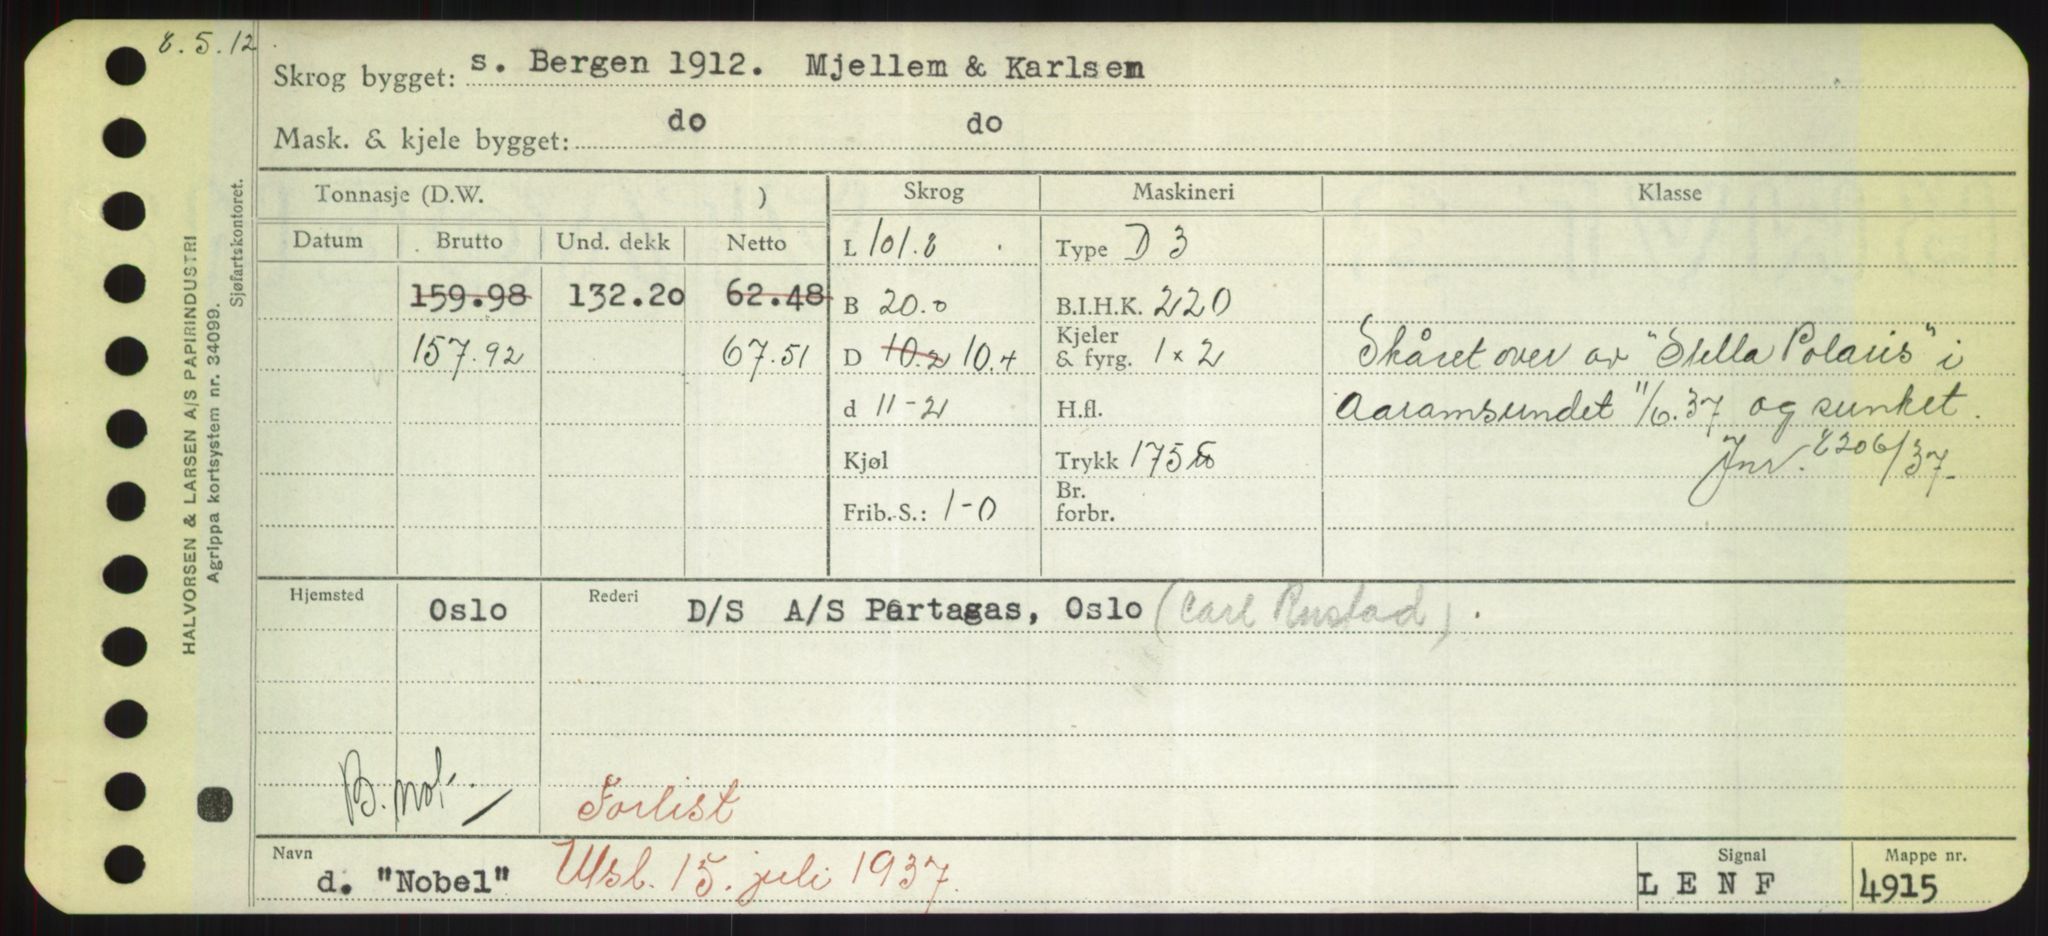 8.5.12
Skrog bygget: s. Bergen 1912. Mjellem & Karlsen
Mask. & kjele bygget: do do
Tonnasje (D.W. ) Skrog Maskineri Klasse
Datum Brutto Und. dekk Netto L 101.8 Type D 3
159.98 132.20 62.48 B 20.0 B.I.H.K. 220
157.92 67.51 D 10.2 10.4 Kjeler & fyrg. 1 x 2 Skåret over av "Stella Polaris" i
d 11-2 H.fl. Aaramsundet 11/6.37 og sunket.
Kjøl Trykk 175 Jnr. 8206/37
Frib.S.: 1-0 Br. forbr.
Hjemsted Oslo Rederi D/S A/S Partagas, Oslo (Carl Rustad).
B. not.
Forlist
Navn d. "Nobel" Utsl. 15. juli 1937. Signal L E N F Mappe nr. 4915
HALVORSEN & LARSEN A/S PAPIRINDUSTRI
Agrippa kortsystem nr. 34099.
Sjøfartskontoret.